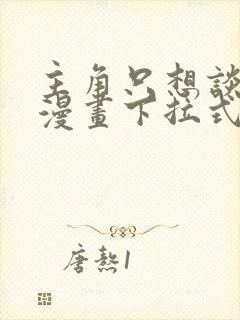 主角只想談
漫畫下拉式
唐熬1